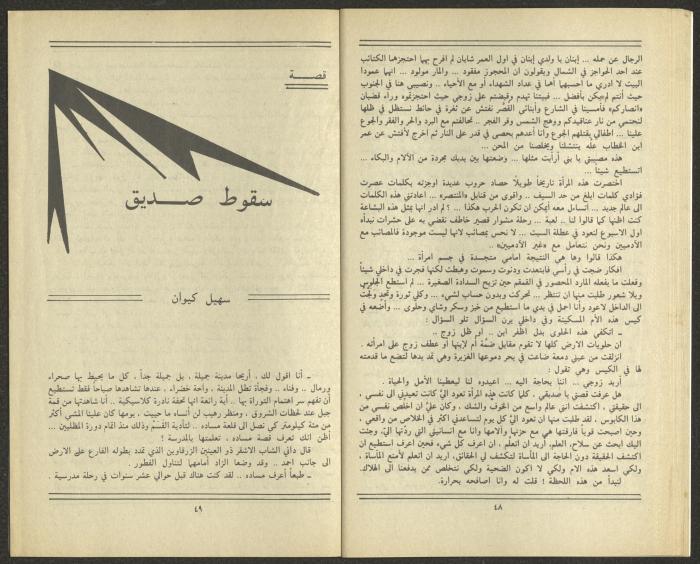 الرجال عن حمله ... إبنان يا ولدي إبنان في اول العمر شابان لم افرح بهما احتجزهما الكتائب
عند احد الحواجز في الشمال ويقولون ان المحجوز مفقود ... والمار مولود ... انهما عمودا
البيت لا ادري ما احسبهما أهما في عداد الشهداء أو مع الأحياء .. ونصيبي هنا في الجنوب
حيث أنتم لم يكن بأفضل ... فبيتنا تهدم وقبضتم على زوجي حيث احتجزتموه وراء قضبان
«انصاركم» فأمسينا في الشارع وأبنائي القصّر نفتش عن ثغرة في حائط نستظل في ظلها
لنحتمي من نار عناقيدكم ووهج الشمس وقر الفجر .. تحالفتم مع البرد والحر والفقر والجوع
علينا ... اطفالي يقتلهم الجوع وانا أعدهم بحصى في قدر على النار ثم أخرج لأفتش عن عمر
ابن الخطاب علّه ينتشلنا ويخلصنا من المحن ...
هذه مصيبتي يا بني أرأيت مثلها ... وضعتها بين يديك مجردة من الآلام والبكاء ...
اتستطيع شيئاً ...
اختصرت هذه المرأة تاريخاً طويلاً حصاد حروب عديدة اوجزته بكلمات عصرت
فؤادي كلمات ابلغ من حد السيف .. واقوى من قنابل «المنتصر» ... اعادتني هذه الكلمات
الى عالم جديد ... اتساءل معه أيمكن ان تكون الحرب هكذا ... ؟ لم ادر انها بمثل هذه البشاعة
كنت اظنها كما قالوا لنا .. لعبة ... رحلة مشوار قصير خاطف نقضي به على حشرات نبدأه
اول الاسبوع لنعود في عطلة السبت ... لا نحس بمصائب لانها ليست موجودة فالمصائب مع
الآدميين ونحن نتعامل مع «غير الآدميين» ..
هكذا قالوا وها هي النتيجة امامي متجسدة في جسم امرأة ...
افكار ضجت في رأسي فابتعدت ودنوت وسموت وهبطت لكنها فجرت في داخلي شيئاً
وفعلت ما يفعله المارد المحصور في القمقم حين تزيح السدادة الصغيرة ... لم استطع الجلوس
وبلا شعور طلبت منها ان تنتظر ... تحركت وبدون حساب لشيء ... وكلي ثورة وتحدٍ
الى الداخل لاعود وأنا احمل في يدي ما استطيع من خبز وسكر وشاي وحلوى ... وأضعه في
كيس هذه الأم المسكينة وفي داخلي يرن السؤال تلو السؤال :
ـ اتكفي هذه الحلوى بدل اظفر ابن .. او ظل زوج ..
ان حلويات الارض كلها لا تقوم مقابل ضمّة أم لإبنها أو عطف زوج على امرأته .
انزلقت من عيني دمعة ضاعت في بحر دموعها الغزيرة وهي تمد يدها لتضع ما قدمته
لها في الكيس وهي تقول :
أريد زوجي ... اننا بحاجة اليه ... اعيدوه لنا ليعطينا الأمل والحياة .
هل عرفت قصتي يا صديقي . كلما كانت هذه المرأة تعود اليّ كانت تعيدني الى نفسي ،
الى حقيقتي ، اكتشفت انني عالم واسع من الخوف والشك ، وكان عليّ ان اخلص نفسي من
هذا الكابوس . لقد طلبت منها ان تعود اليّ كل يوم لتساعدني اكثر في الخلاص من واقعي ،
وحين اصبحت قوياً فارقتها هي مع حزنها وآلامها وانا مع انسانيتي التي ردتها اليّ. وجئت
اليك ابحث عن سلاح، العلم، أريد ان اتعلم ، ان اعرف كل شيء فحين اعرف استطيع ان
اكتشف الحقيقة دون الحاجة الى المأساة لتكشف لي الحقائق ، اريد ان اتعلم لأمنع المأساة ،
ولكي اسعد هذه الام ولكي لا اكون الضحية ولكي نتخلص ممن يدفعنا الى الهلاك.
لنبدأ من هذه اللحظة ! قلت له وانا اصافحه بحرارة.
٤٨
قصــــة
سقوط صــــديق
سهيل كيوان
ـ أنا اقول لك ، أريحا مدينة جميلة ، بل جميلة جداً ، كل ما يحيط بها صحراء
ورمال .. وفناء .. وفجأة تطل المدينة ، واحة خضراء ، عندها تشاهدها صباحاً فقط تستطيع
أن تفهم سر اهتمام التوراة بها .. أية رائعة انها تحفة نادرة كلاسيكية .. أنا شاهدتها من قمة
جبل عند لحظات الشروق ، ومنظر رهيب لن أنساه ما حييت ، يومها كان علينا المشي أكثر
من مئة كيلومتر كي نصل الى قلعة مسادة .. لتأدية القسم وذلك منذ ايام دورة المظليين ...
أظن انك تعرف قصة مساده ، تعلمتها بالمدرسة !
قال داني الشاب الاشقر ذو العينين الزرقاوين الذي تمدد بطوله الفارع على الارض
الى جانب احمد .. وقد وضعا الزاد أمامهما لتناول الفطور .
ـ طبعاً أعرف مساده .. لقد كنت هناك قبل حوالي عشر سنوات في رحلة مدرسية .
٤٩